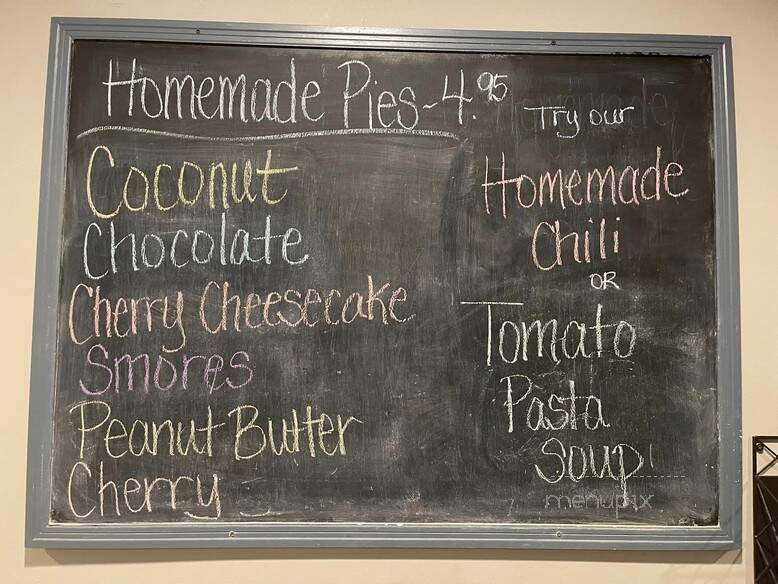 Homemade Pies ~ 4.95
Coconut
Chocolate
Cherry Cheesecake
Smores
Peanut Butter
Cherry
Try our
Homemade
Chili
OR
Tomato
Pasta
Soup
menupix